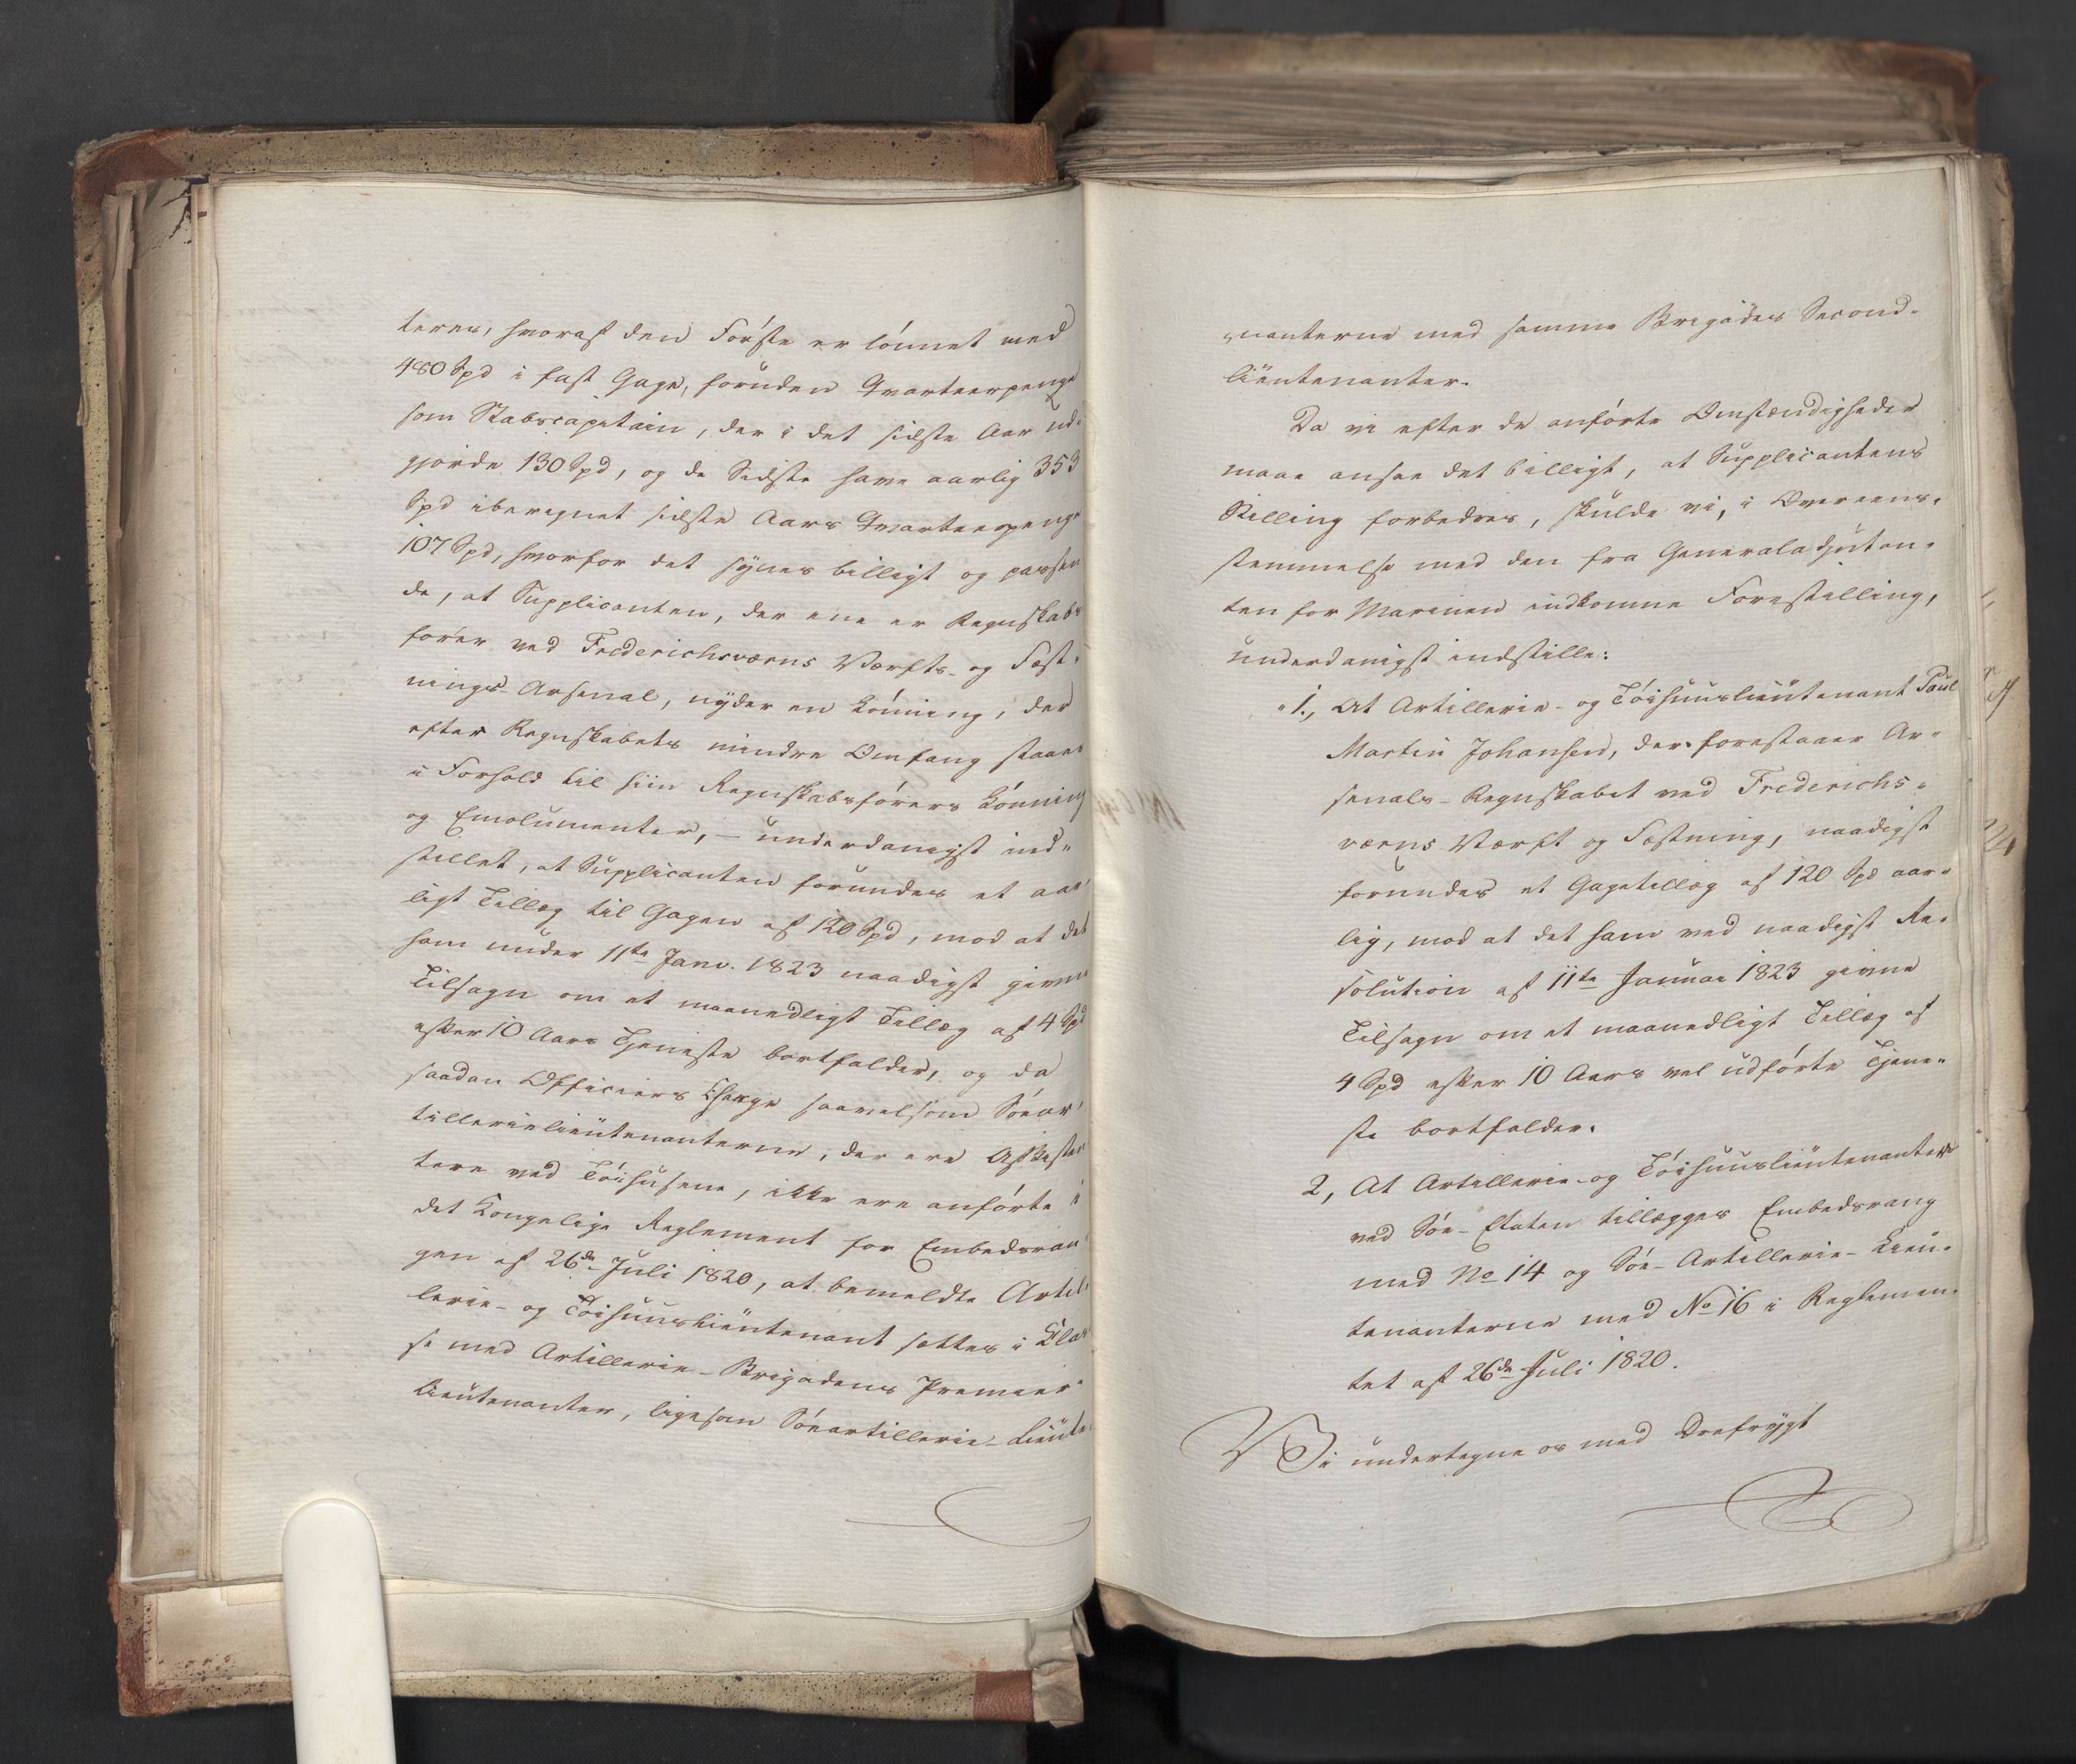 teres, hvoraf den Förste er lönnet med
480 Spd i fast Gage, foruden Qvarteerpenge
som Stabscapitain, der i det sidste Aar ud-
gjorde 130 Spd, og de Sidste have aarlig 353
Spd iberegnet sidste Aars Qvarteerpenge
107 Spd, hvorfor det synes billigt og passen
de, at Supplicanten, der ene er Regnskabs
förer ved Frederichsværns Værfts- og Fæst-
nings-Arsenal, nyder en Lönning, der
efter Regnskabets mindre Omfang staaer
i Forhold til hiin Regnskabsförers Lönning
og Emolumenter, – underdanigst ind-
stillet, at Supplicanten forundes et aar-
ligt Tillæg til Gagen af 120 Spd, mod at det
ham under 11te Janv. 1823 naadigst givne
Tilsagn om et maanedligt Tillæg af 4 Spd
efter 10 Aars Tjeneste bortfalder, og da
saadan Officiers Charge saavelsom Söear-
tillerielieutenanterne, der ere Assisten
tere ved Töihusene, ikke ere anförte i
det Kongelige Reglement for Embedsran
gen af 26de Juli 1820, at bemeldte Artil-
lerie- og Töihuuslieutenant sættes i Clas
se med Artillerie-Brigadens Premier-
lieutenanter, ligesom Söeartillerie-Lieute-
nanterne med samme Brigades Second-
lieutenanter.
Da vi efter de anförte Omstændigheder
maae ansee det billigt, at Supplicantens
Stilling forbedres, skulde vi, i Overeens-
stemmelse med den fra Generaladjutan-
ten for Marinen indkomne Forestilling,
underdanigst indstille:
"1., At Artillerie- og Töihuuslieutenant Paul
Martin Johansen, der forestaaer Ar-
senals-Regnskabet ved Frederichs-
værns Værft og Fæstning, naadigst
forundes et Gagetillæg af 120 Spd aar-
lig, mod at det ham ved naadigst Re-
solution af 11te Januar 1823 givne
Tilsagn om et maanedligt Tillæg af
4 Spd efter 10 Aars vel udförte Tjene-
ste bortfalder.
2, At Artillerie- og Töihuuslieutenanter
ved Söe-Etaten tillægges Embedsrang
med No 14 og Söe-Artillerie-Lieu-
tenanterne med No 16 i Reglemen-
tet af 26de Juli 1820.
Vi undertegne os med Ærefrygt